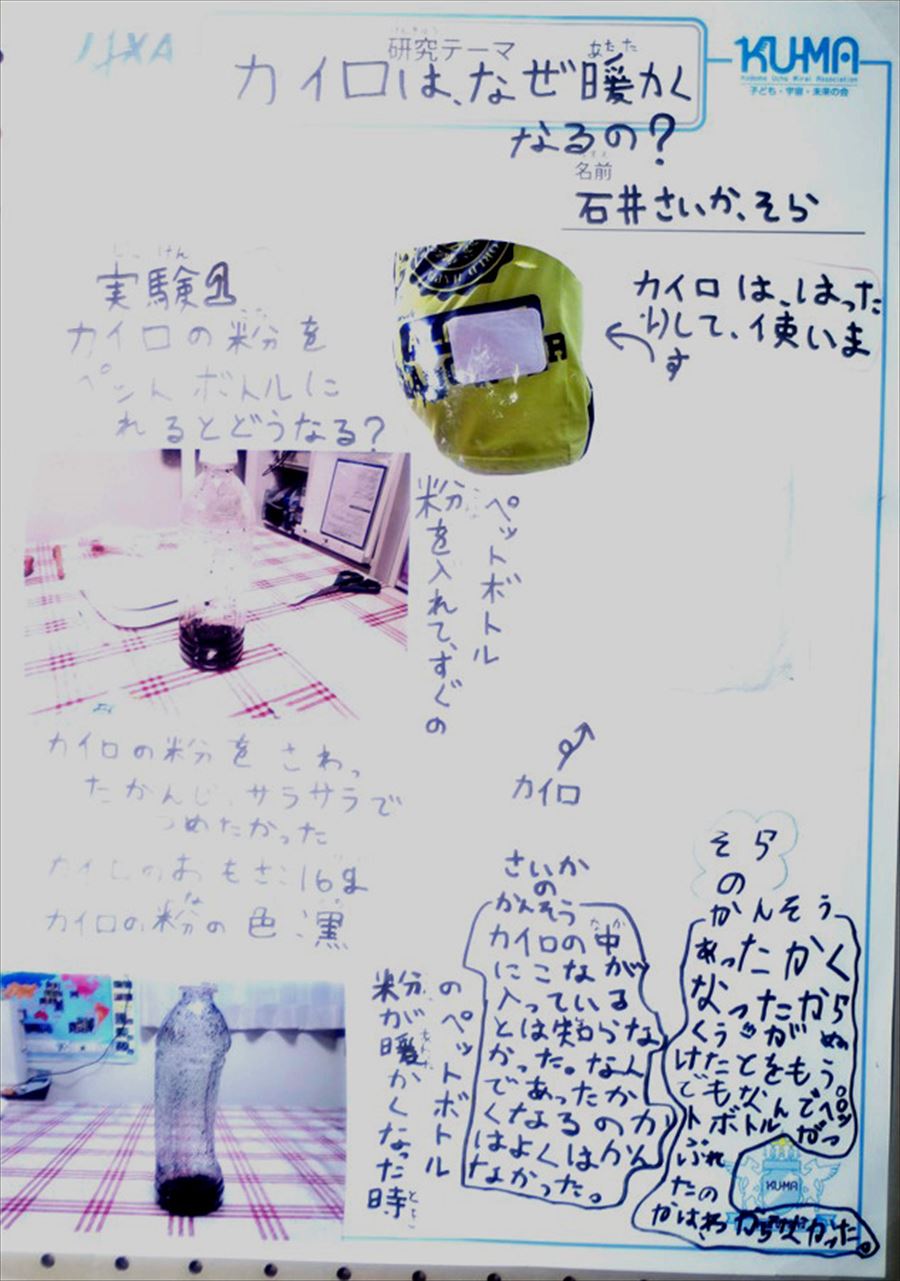 JAXA
研究テーマ
カイロは、なぜ暖かく
なるの？
KUMA
子ども・宇宙・未来の会
名前
石井さいか、そら
じっけん
実験1
カイロの粉を
ペットボトルに
れるとどうなる？
カイロは、はった
りして、使いま
す
ペットボトル
粉を入れて、すぐの
カイロの粉をさわっ
たかんじ、サラサラで
つめたかった
カイロのおもさ:16g
カイロの粉の色:黒
カイロ
さいか
の
かんそう
カイロの中
にこなが
入っている
とは知らな
かった。なん
であったか
くなるのか
はよくはかん
なかった。
そら
の
かんそう
あったかく
なったから
くうきがぬ
けたとをもう
でもなんでペッ
トボトルがつ
ぶれ
たの
かはわからなかった。
粉が暖かくなった時
のペットボトル
KUMA